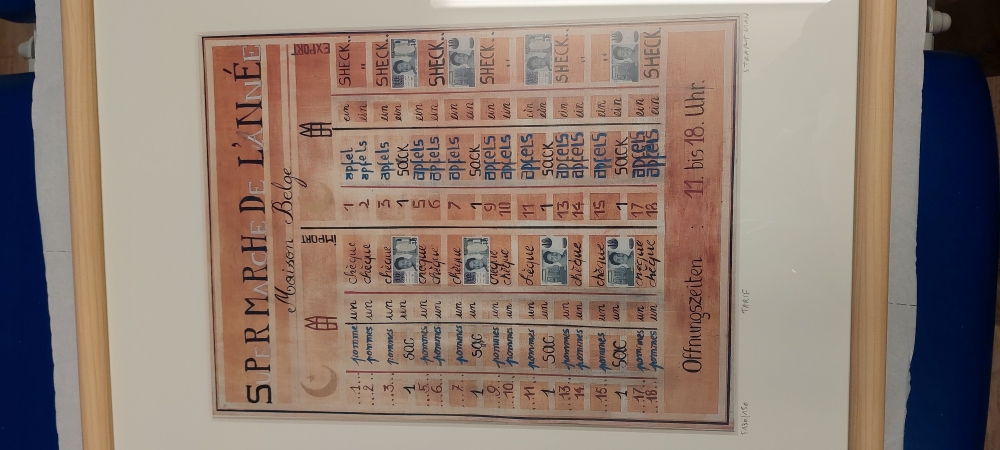 SPERMARcHE DE L'ANNÉE
Maison Belge
IMPORT EXPORT
...1... pomme un chèque 1 apfel ein SHECK..
...2... pommes un chèque 2 apfels ein "
...3... pommes un chèque 3 apfels ein SHECK
1 SAC un 1 SACK ein
...5... pommes un chèque 5 apfels ein
...6... pommes un chèque 6 apfels ein SHECK
...7... pommes un chèque 7 apfels ein
1 SAC un 1 SACK ein
...9... pommes un chèque 9 apfels ein SHECK..
...10... pommes un chèque 10 apfels ein "
...11... pommes un chèque 11 apfels ein
1 SAC un 1 SACK ein
...13... pommes un chèque 13 apfels ein SHECK
...14... pommes un chèque 14 apfels ein "
...15... pommes un chèque 15 apfels ein "
1 SAC un 1 SACK ein
...17... pommes un chèque 17 apfels ein
...18... pommes un chèque 18 apfels ein SHECK
Öffnungszeiten : 11. bis 18. Uhr.
TARIF